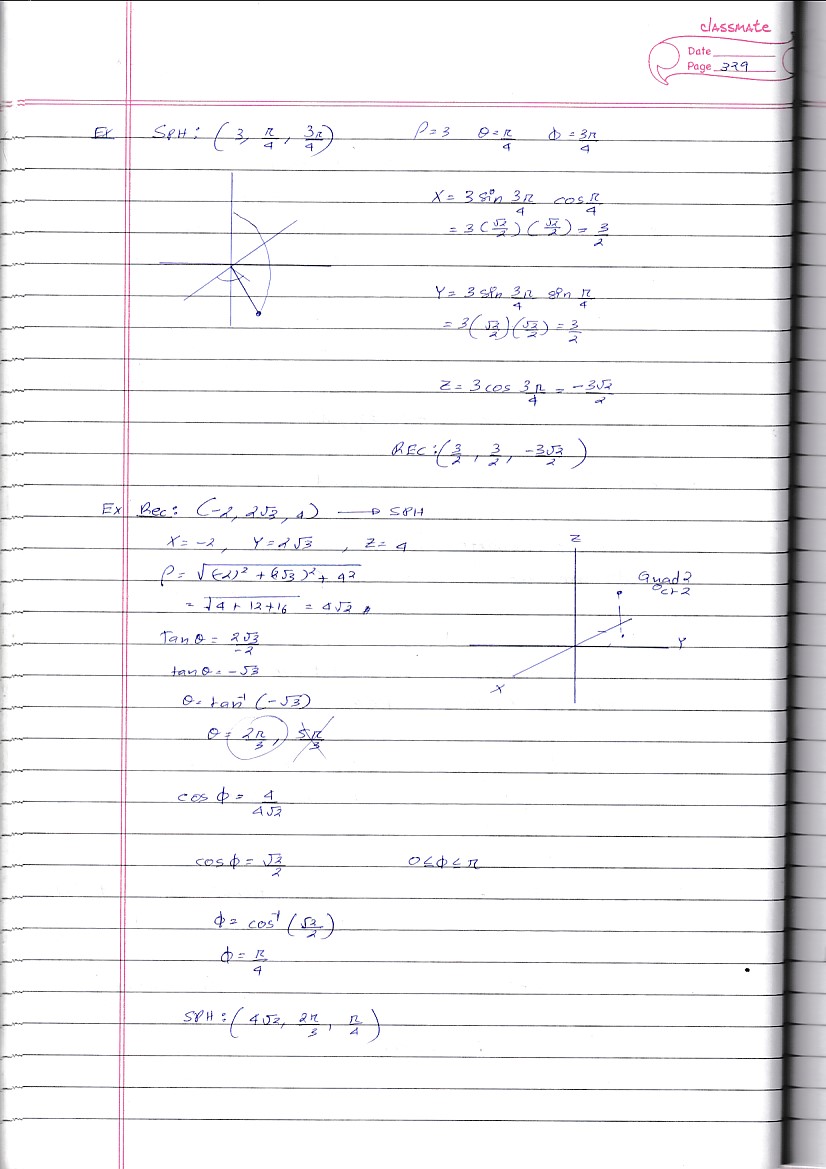 classmate
Date
Page 339
Ex SPH: (3, π/4, 3π/4) ρ=3 θ=π/4 ϕ=3π/4
X = 3 sin 3π/4 cos π/4
= 3 (√2/2) (√2/2) = 3/2
Y = 3 sin 3π/4 sin π/4
= 3 (√2/2) (√2/2) = 3/2
Z = 3 cos 3π/4 = -3√2/2
REC: (3/2, 3/2, -3√2/2)
Ex Rec: (-2, 2√3, 4) → SPH
X = -2, Y = 2√3, Z = 4
ρ = √(-2)² + (2√3)² + 4²
= √4 + 12 + 16 = 4√2
Tan θ = 2√3/-2
tan θ = -√3
θ = tan⁻¹ (-√3)
θ = 2π/3, 5π/3
Z
Quad 2
Oct 2
Y
X
cos ϕ = 4/4√2
cos ϕ = √2/2 0≤ϕ≤π
ϕ = cos⁻¹ (√2/2)
ϕ = π/4
SPH: (4√2, 2π/3, π/4)